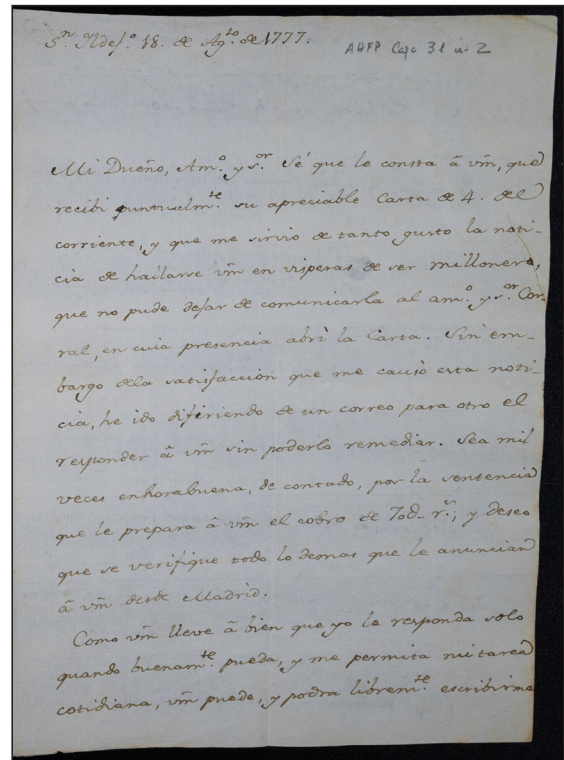 S.n Yldef.o 18. de Ag.to de 1777.
AHPP Caja 31 n: 2
Mi Dueño, Am.o y s.or Sé que le consta â vm̃, que
recibi puntualm.te su apreciable Carta de 4. del
corriente, y que me sirvio de tanto gusto la noti-
cia de hallarse vm̃ en visperas de ser millonero,
que no pude dejar de comunicarla al am.o y s.or Cor-
ral, en cuia presencia abrì la Carta. Sin em-
bargo dela satisfaccion que me causò esta noti-
cia, he ido difiriendo de un correo para otro el
responder â vm̃ sin poderlo remediar. Sea mil
veces enhorabuena, de contado, por la sentencia
que le prepara â vm̃ el cobro de r.s; y deseo
que se verifique todo lo demas que le anuncian
â vm̃ desde Madrid.
Como vm̃ lleve â bien que yo le responda solo
quando buenam.te pueda, y me permita mi tarea
cotidiana, vm̃ puede, y podra librem.te escribirme